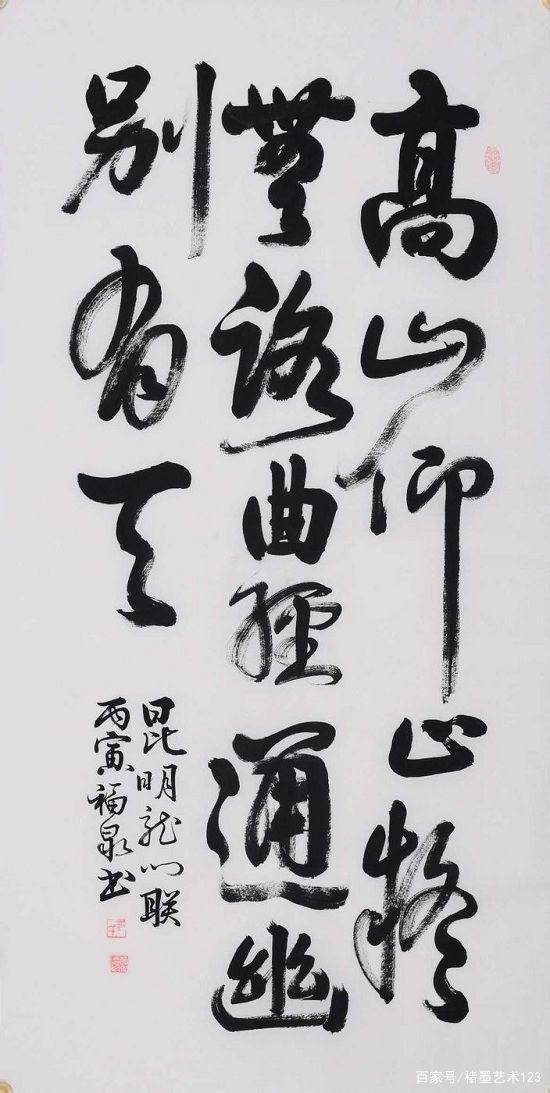 高山仰止擬
無路曲徑通幽
别有天
昆明龙门联
丙寅福泉书
百家号/楮墨艺术123